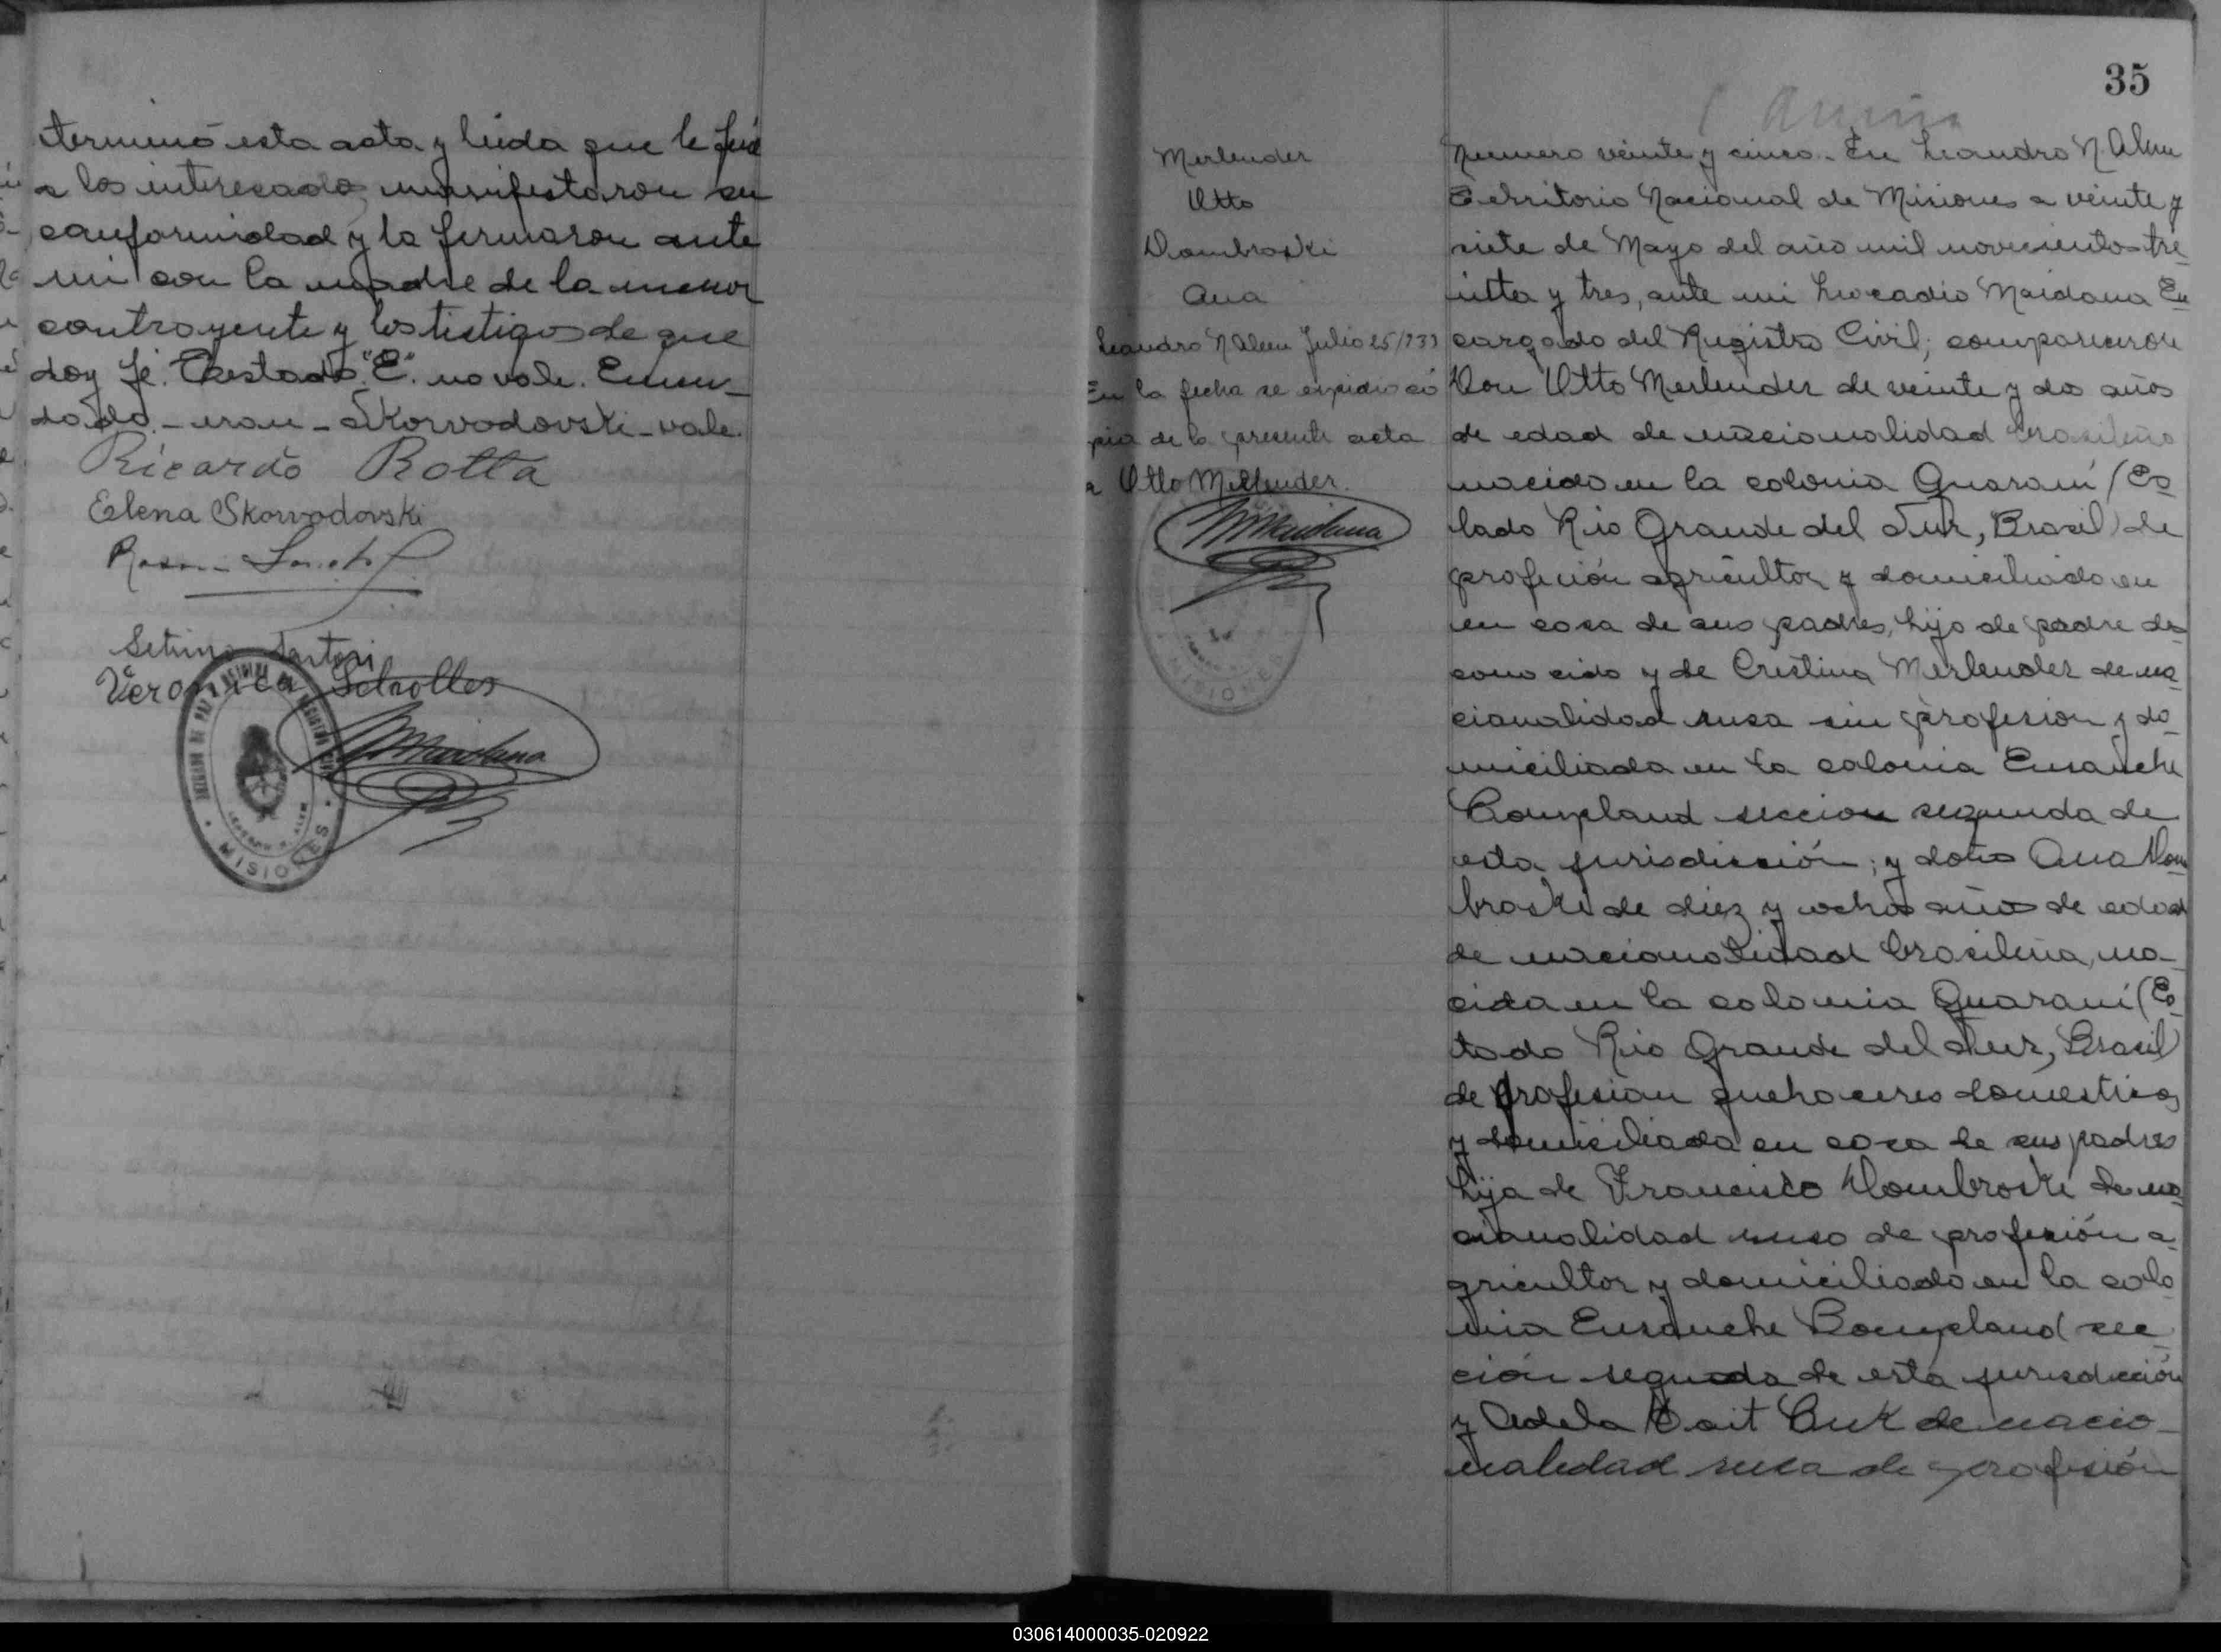 terminó esta acta y leida que le fué
a los interesados, manifestaron su
conformidad y la firmaron ante
mi con la madre de la menor
contrayente y los testigos de que
doy fé. Testado "E". no vale. Enmen-
dado - eran - Skorvodovski - vale.
Ricardo Rotta
Elena Skorvodovski
Setimo Sartori
Veronica Scholles
JUZGADO DE PAZ
MISIONES
35
Merlender
Otto
Dombroski
Ana
Leandro N Alem Julio 25/933
En la fecha se expidió có
pia de la presente acta
a Otto Merlender.
MISIONES
Numero veinte y cinco - En Leandro N. Alem
Territorio Nacional de Misiones a veinte y
siete de Mayo del año mil novecientos tre-
inta y tres, ante mi Leocadio Maidana En-
cargado del Registro Civil; comparecieron
Don Otto Merlender de veinte y dos años
de edad de nacionalidad brasileño
nacido en la colonia Guaraní (Es-
tado Rio Grande del Sur, Brasil) de
profesión agricultor y domiciliado en
en casa de sus padres, hijo de padre des
conocido y de Cristina Merlender de na-
cionalidad rusa sin profesion y do-
miciliada en la colonia Ensanche
Bompland seccion segunda de
esta jurisdicción; y doña Ana Dom-
broski de diez y ocho años de edad
de nacionalidad brasileña, na-
cida en la colonia Guaraní (Es-
tado Rio Grande del Sur, Brasil)
de profesion quehaceres domesticos
y domiciliada en casa de sus padres
hija de Francisco Dombroski de na-
cionalidad ruso de profesión a-
gricultor y domiciliado en la colo-
nia Ensanche Bompland sec-
ción segunda de esta jurisdicción
y Adela de nacio-
nalidad rusa de profesión
030614000035-020922